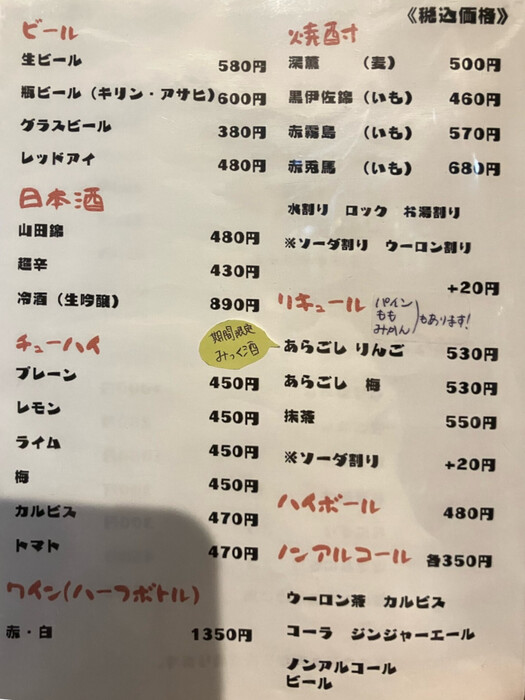 《税込価格》
ビール
生ビール 580円
瓶ビール（キリン・アサヒ）600円
グラスビール 380円
レッドアイ 480円
日本酒
山田錦 480円
超辛 430円
冷酒（生吟醸） 890円
チューハイ
プレーン 450円
レモン 450円
ライム 450円
梅 450円
カルピス 470円
トマト 470円
ワイン(ハーフボトル)
赤・白 1350円
焼酎
深薫 （麦） 500円
黒伊佐錦（いも） 460円
赤霧島 （いも） 570円
赤兎馬 （いも） 680円
水割り ロック お湯割り
※ソーダ割り ウーロン割り
+20円
リキュール
パイン
もも
みかん
もあります!
期間限定
みっく酒
あらごし りんご 530円
あらごし 梅 530円
抹茶 550円
※ソーダ割り +20円
ハイボール 480円
ノンアルコール 各350円
ウーロン茶 カルピス
コーラ ジンジャーエール
ノンアルコール
ビール